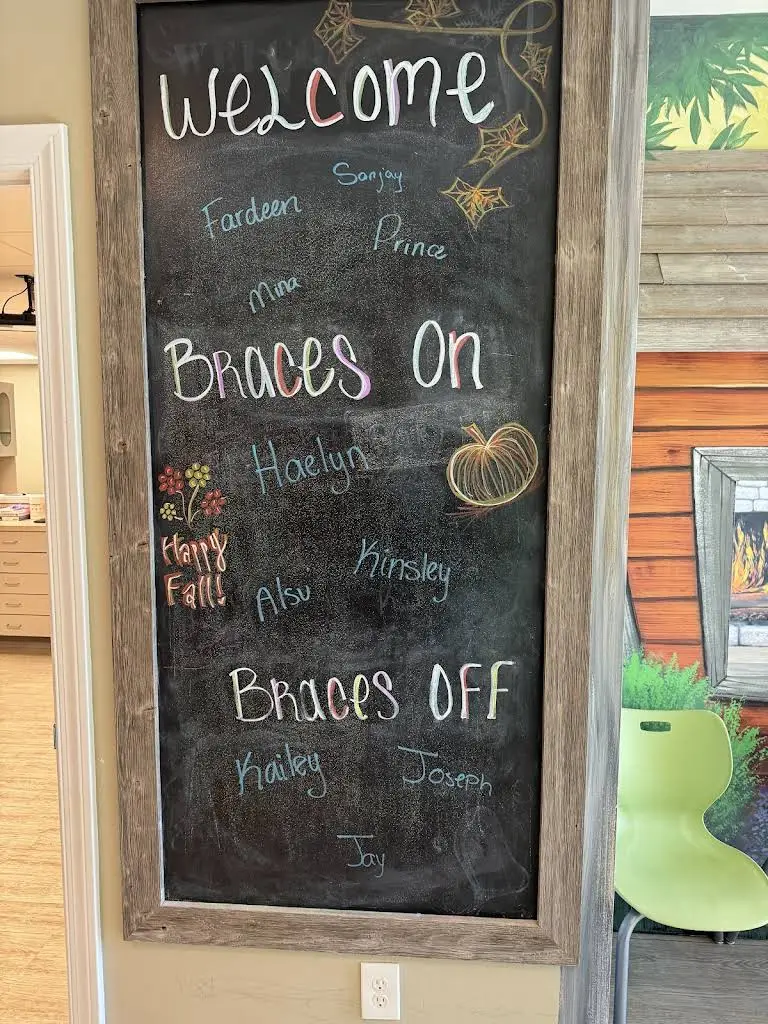 WELCOME
Sanjay
Fardeen
Prince
Mina
BRACES ON
Haelyn
Happy
Fall!
Kinsley
Alsu
BRACES OFF
Kailey Joseph
Jay